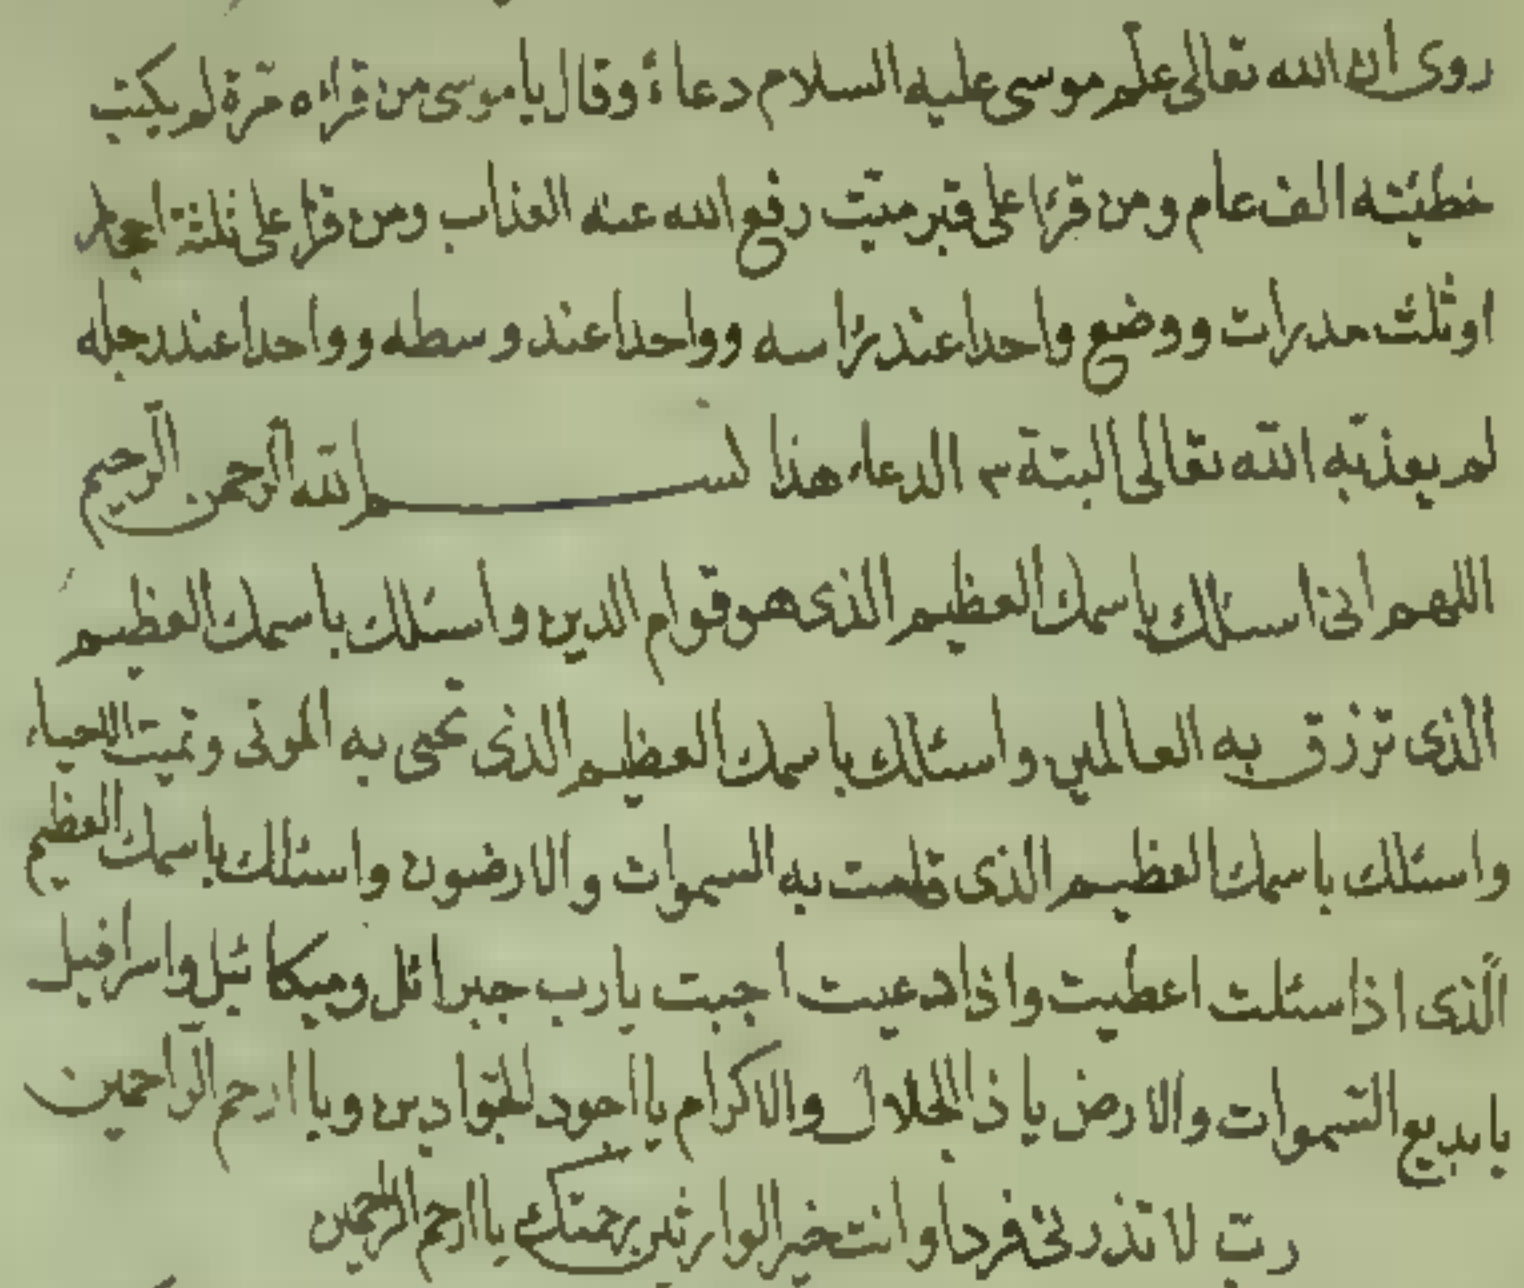 روى ان الله تعالى علم موسى عليه السلام دعاء وقال يا موسى من قراه مرة لم يكتب
خطيئته الف عام ومن قرا على قبر ميت رفع الله عنه العذاب ومن قرا على ثلثة احجار
او ثلث مدرات ووضع واحدا عند راسه وواحدا عند وسطه وواحدا عند رجله
لم يعذبه الله تعالى البتة الدعاء هذا بسم الله الرحمن الرحيم
اللهم انى اسئلك باسمك العظيم الذى هو قوام الدين واسئلك باسمك العظيم
الذى ترزق به العالمين واسئلك باسمك العظيم الذى تحيى به الموتى وتميت الاحياء
واسئلك باسمك العظيم الذى قامت به السموات والارضون واسئلك باسمك العظيم
الذى اذا سئلت اعطيت واذا دعيت اجبت يا رب جبرائل وميكائيل واسرافيل
يا بديع السموات والارض يا ذا الجلال والاكرام يا اجود الجوادين ويا ارحم الراحمين
رب لا تذرنى فردا وانت خير الوارثين برحمتك يا ارحم الراحمين